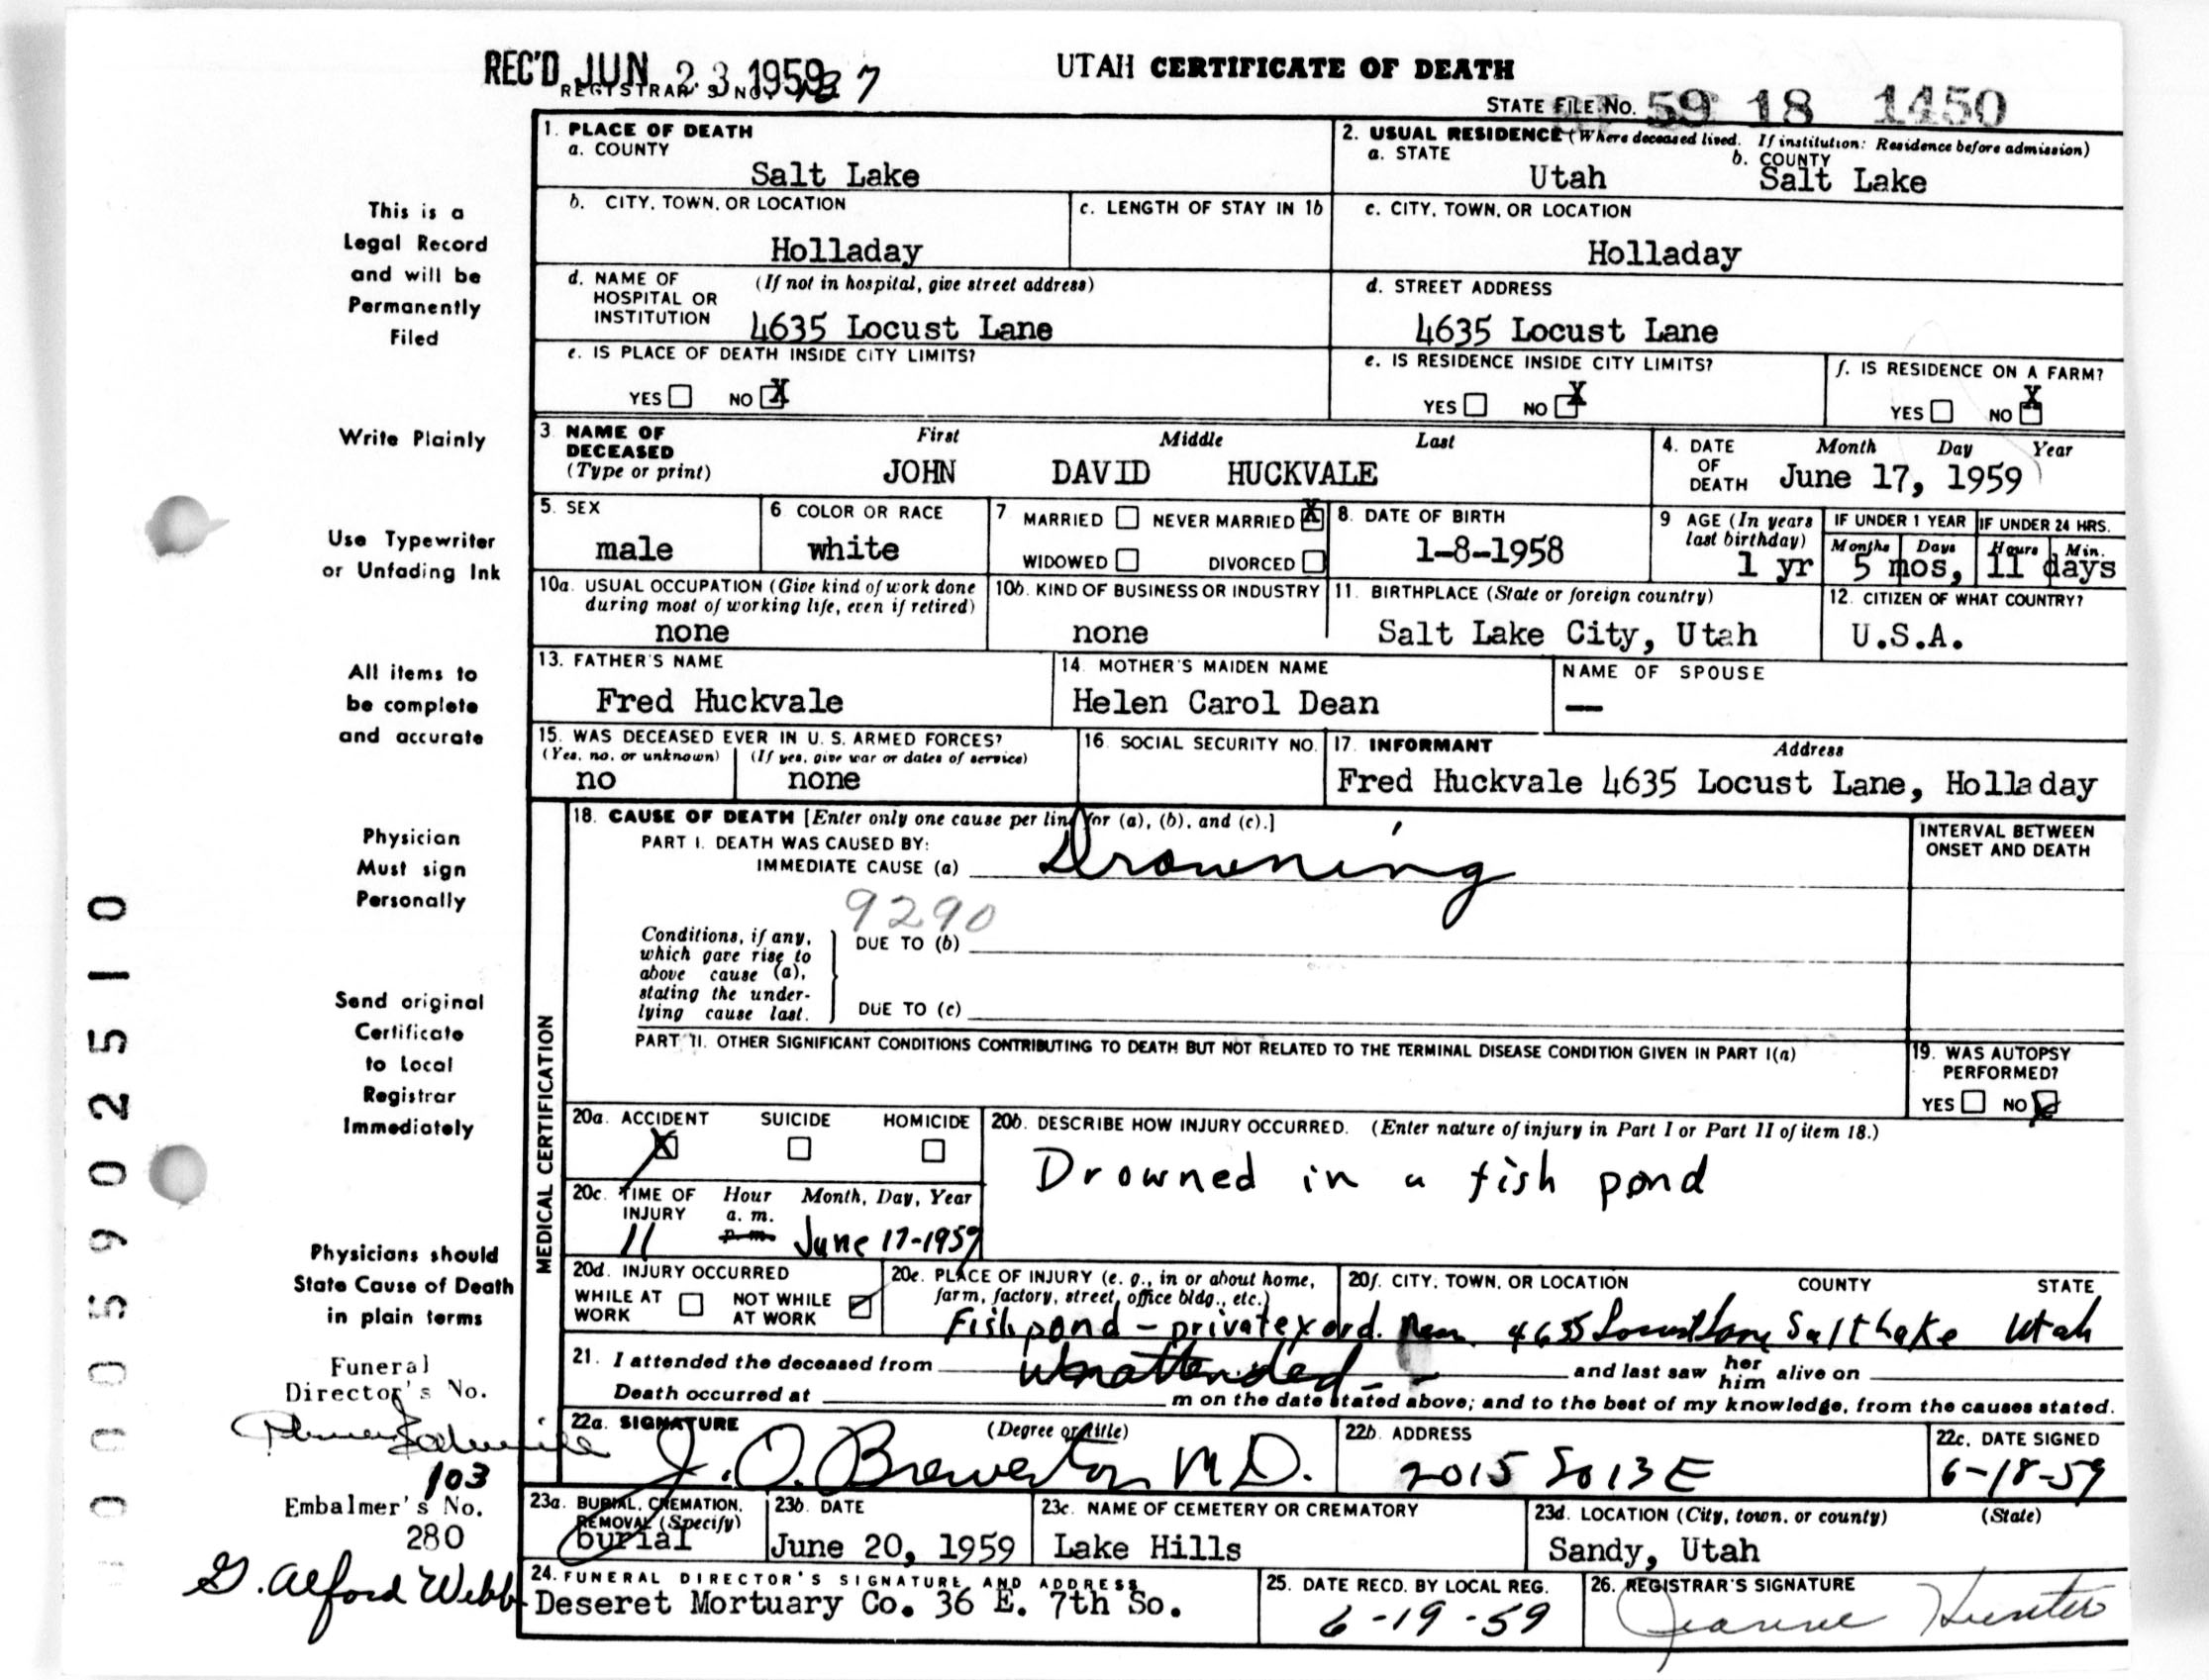 REC'D JUN 23 1959
REGISTRAR'S NO. 37
UTAH CERTIFICATE OF DEATH
STATE FILE NO. 59 18 1450
1. PLACE OF DEATH
a. COUNTY
Salt Lake
2. USUAL RESIDENCE (Where deceased lived. If institution: Residence before admission)
a. STATE
Utah
b. COUNTY
Salt Lake
b. CITY, TOWN, OR LOCATION
Holladay
c. LENGTH OF STAY IN 1b
c. CITY, TOWN, OR LOCATION
Holladay
d. NAME OF HOSPITAL OR INSTITUTION (If not in hospital, give street address)
4635 Locust Lane
d. STREET ADDRESS
4635 Locust Lane
e. IS PLACE OF DEATH INSIDE CITY LIMITS?
YES NO X
e. IS RESIDENCE INSIDE CITY LIMITS?
YES NO X
f. IS RESIDENCE ON A FARM?
YES NO X
3. NAME OF DECEASED (Type or print)
First Middle Last
JOHN DAVID HUCKVALE
4. DATE OF DEATH
Month Day Year
June 17, 1959
5. SEX
male
6. COLOR OR RACE
white
7. MARRIED NEVER MARRIED X
WIDOWED DIVORCED
8. DATE OF BIRTH
1-8-1958
9. AGE (In years last birthday)
1 yr
IF UNDER 1 YEAR
Months Days
IF UNDER 24 HRS.
Hours Min.
5 mos, 11 days
10a. USUAL OCCUPATION (Give kind of work done during most of working life, even if retired)
none
10b. KIND OF BUSINESS OR INDUSTRY
none
11. BIRTHPLACE (State or foreign country)
Salt Lake City, Utah
12. CITIZEN OF WHAT COUNTRY?
U.S.A.
13. FATHER'S NAME
Fred Huckvale
14. MOTHER'S MAIDEN NAME
Helen Carol Dean
NAME OF SPOUSE
—
15. WAS DECEASED EVER IN U. S. ARMED FORCES?
(Yes, no, or unknown) (If yes, give war or dates of service)
no none
16. SOCIAL SECURITY NO.
17. INFORMANT Address
Fred Huckvale 4635 Locust Lane, Holladay
MEDICAL CERTIFICATION
18. CAUSE OF DEATH [Enter only one cause per line for (a), (b), and (c).]
PART I. DEATH WAS CAUSED BY:
IMMEDIATE CAUSE (a) Drowning
INTERVAL BETWEEN ONSET AND DEATH
9290
Conditions, if any, which gave rise to above cause (a), stating the underlying cause last.
DUE TO (b)
DUE TO (c)
PART II. OTHER SIGNIFICANT CONDITIONS CONTRIBUTING TO DEATH BUT NOT RELATED TO THE TERMINAL DISEASE CONDITION GIVEN IN PART I(a)
19. WAS AUTOPSY PERFORMED?
YES NO
20a. ACCIDENT SUICIDE HOMICIDE
X
20b. DESCRIBE HOW INJURY OCCURRED. (Enter nature of injury in Part I or Part II of item 18.)
Drowned in a fish pond
20c. TIME OF INJURY
Hour Month, Day, Year
a. m.
p. m.
11 June 17-1959
20d. INJURY OCCURRED
WHILE AT WORK NOT WHILE AT WORK
20e. PLACE OF INJURY (e. g., in or about home, farm, factory, street, office bldg., etc.)
Fish pond - private
20f. CITY, TOWN, OR LOCATION COUNTY STATE
4635 Locust Lane Salt Lake Utah
21. I attended the deceased from Unattended and last saw her him alive on
Death occurred at m on the date stated above; and to the best of my knowledge, from the causes stated.
22a. SIGNATURE (Degree or title)
J. O. Brewerton M.D.
22b. ADDRESS
2015 So 13 E
22c. DATE SIGNED
6-18-59
23a. BURIAL, CREMATION, REMOVAL (Specify)
burial
23b. DATE
June 20, 1959
23c. NAME OF CEMETERY OR CREMATORY
Lake Hills
23d. LOCATION (City, town, or county) (State)
Sandy, Utah
24. FUNERAL DIRECTOR'S SIGNATURE AND ADDRESS
Deseret Mortuary Co. 36 E. 7th So.
25. DATE RECD. BY LOCAL REG.
6-19-59
26. REGISTRAR'S SIGNATURE
Jeanne Hunter
This is a
Legal Record
and will be
Permanently
Filed
Write Plainly
Use Typewriter
or Unfading Ink
All items to
be complete
and accurate
Physician
Must sign
Personally
Send original
Certificate
to Local
Registrar
Immediately
Physicians should
State Cause of Death
in plain terms
Funeral
Director's No.
103
Embalmer's No.
280
G. Alford Webb
0005902510